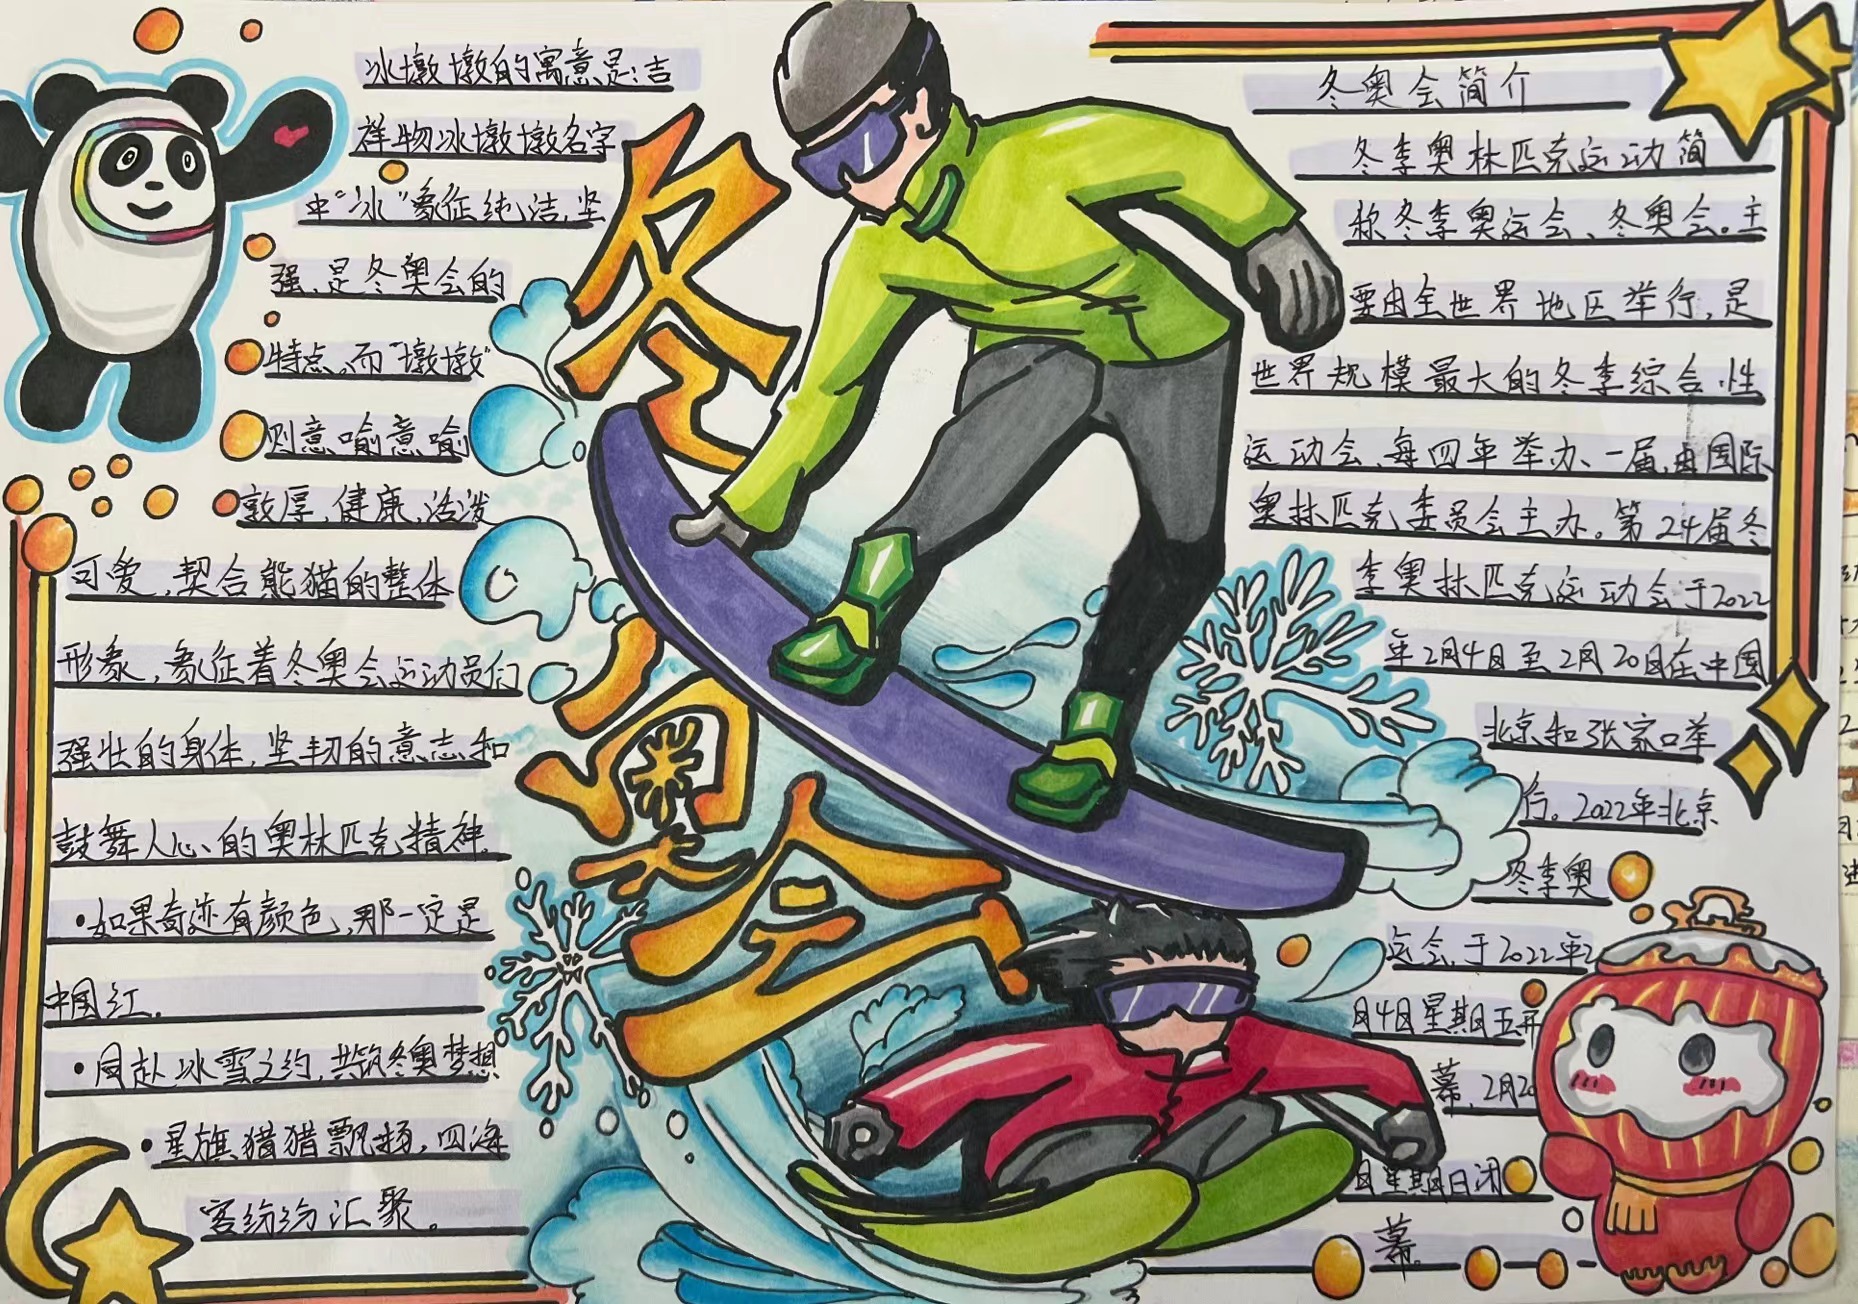 冰墩墩的寓意是:吉
祥物冰墩墩名字
中"冰"象征纯洁,坚
强,是冬奥会的
特点。而"墩墩"
则意喻意喻
敦厚,健康,活泼
可爱,契合熊猫的整体
形象,象征着冬奥会运动员们
强壮的身体,坚韧的意志和
鼓舞人心的奥林匹克精神。
·如果奇迹有颜色,那一定是
中国红。
·同赴冰雪之约,共筑冬奥梦想
·星旗猎猎飘扬,四海
客纷纷汇聚。
冬奥会
冬奥会简介
冬季奥林匹克运动简
称冬季奥运会、冬奥会。主
要由全世界地区举行,是
世界规模最大的冬季综合性
运动会、每四年举办、一届,由国际
奥林匹克委员会主办。第24届冬
季奥林匹克运动会于2022
年2月4日至2月20日在中国
北京和张家口举
行。2022年北京
冬季奥
运会,于2022年2
月4日星期五开
幕,2月20
日星期日闭
幕。